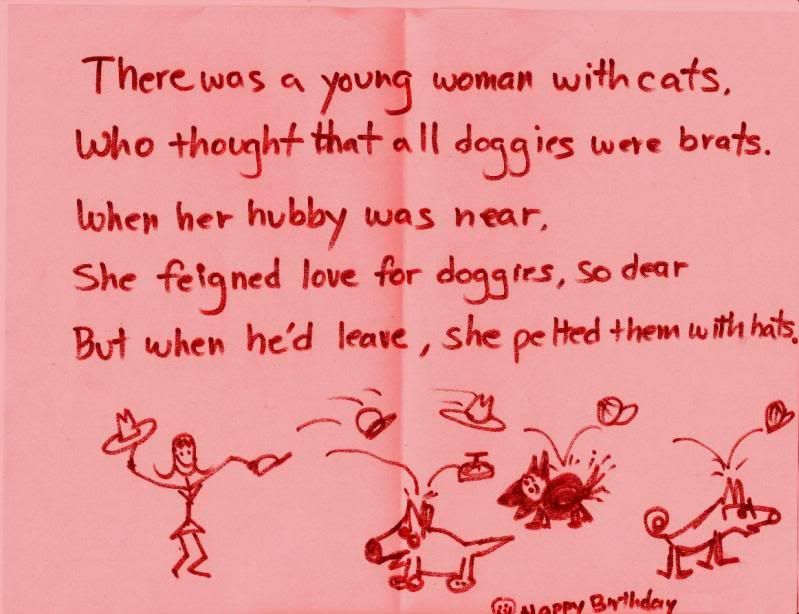 There was a young woman with cats,
Who thought that all doggies were brats.
When her hubby was near,
She feigned love for doggies, so dear
But when he'd leave, she pelted them with hats.
Happy Birthday